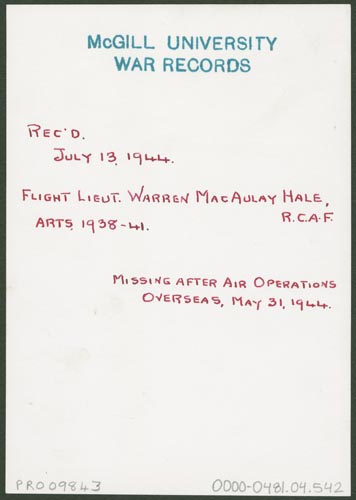 McGILL UNIVERSITY
WAR RECORDS
REC'D.
JULY 13, 1944.
FLIGHT LIEUT. WARREN MACAULAY HALE,
R.C.A.F.
ARTS, 1938-41.
MISSING AFTER AIR OPERATIONS
OVERSEAS, MAY 31, 1944.
PR009843
0000-0481.04.542